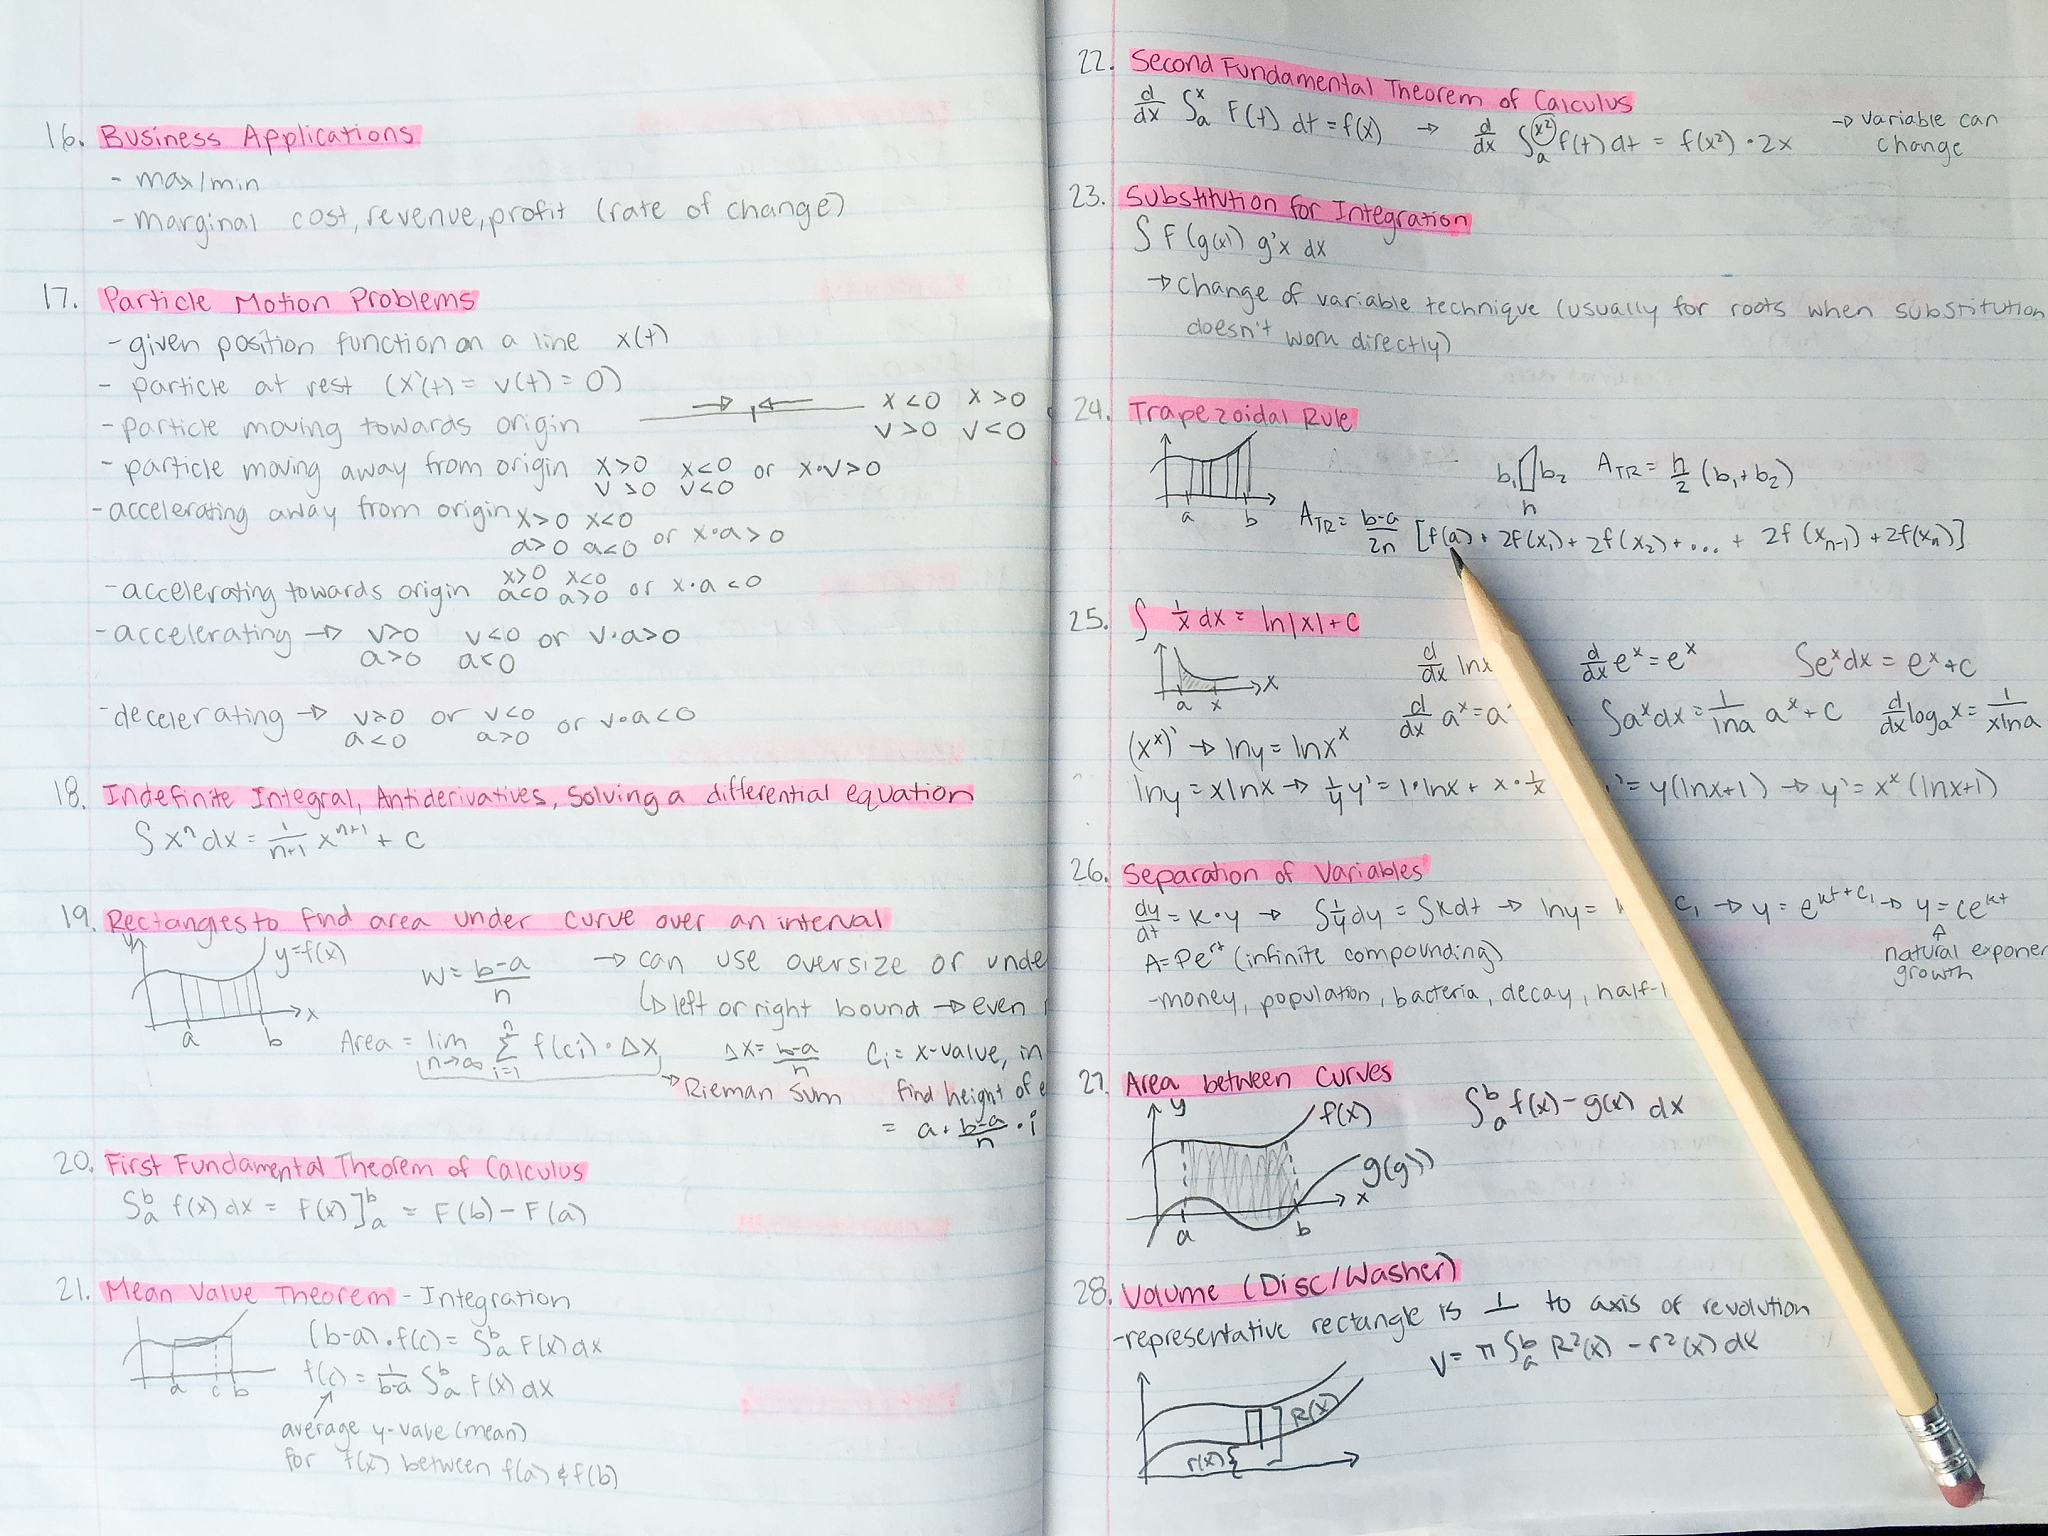 16. Business Applications
- max/min
- marginal cost, revenue, profit (rate of change)
17. Particle Motion Problems
- given position function on a line x(t)
- particle at rest (x'(t) = v(t) = 0)
- particle moving towards origin x<0 x>0
v>0 v<0
- particle moving away from origin x>0 x<0 or x·v>0
v>0 v<0
- accelerating away from origin x>0 x<0 or x·a>0
a>0 a<0
- accelerating towards origin x>0 x<0 or x·a<0
a<0 a>0
- accelerating → v>0 v<0 or v·a>0
a>0 a<0
- decelerating → v>0 or v<0 or v·a<0
a<0 a>0
18. Indefinite Integral, Antiderivatives, Solving a differential equation
∫xⁿdx = 1/(n+1) xⁿ⁺¹ + C
19. Rectangles to find area under curve over an interval
y y=f(x) w = (b-a)/n → can use oversize or unde
↳ left or right bound → even
a b x
Area = lim n→∞ Σ i=1 n f(ci)·Δx Δx = (b-a)/n Ci = x-value, in
→ Rieman Sum find height of e
= a + (b-a)/n · i
20. First Fundamental Theorem of Calculus
∫ₐᵇ f(x) dx = F(x)]ₐᵇ = F(b) - F(a)
21. Mean Value Theorem - Integration
(b-a)·f(c) = ∫ₐᵇ F(x) dx
f(c) = 1/(b-a) ∫ₐᵇ F(x) dx
a c b
average y-value (mean)
for f(x) between f(a) & f(b)
22. Second Fundamental Theorem of Calculus
d/dx ∫ₐˣ F(t) dt = f(x) → d/dx ∫ₐ^(x²) f(t) dt = f(x²)·2x → variable can
change
23. Substitution for Integration
∫ F(g(x)) g'x dx
→ change of variable technique (usually for roots when substitution
doesn't work directly)
24. Trapezoidal Rule
b₁ b₂ h A_TR = h/2 (b₁+b₂)
a b
A_TR = (b-a)/2n [f(a) + 2f(x₁) + 2f(x₂) + ... + 2f(xₙ₋₁) + 2f(xₙ)]
25. ∫ 1/x dx = ln|x| + C
a x x
d/dx lnx d/dx eˣ = eˣ ∫eˣdx = eˣ + C
d/dx aˣ = a ∫aˣdx = 1/lna aˣ + C d/dx logₐx = 1/xlna
(xˣ)' → lny = lnxˣ
lny = xlnx → 1/y y' = 1·lnx + x·1/x ' = y(lnx+1) → y' = xˣ(lnx+1)
26. Separation of Variables
dy/dt = K·y → ∫1/y dy = ∫Kdt → lny = C₁ → y = e^(kt+C₁) → y = ce^(kt)
A = Pe^(rt) (infinite compounding) natural exponen
growth
- money, population, bacteria, decay, half-l
27. Area between Curves
y f(x) ∫ₐᵇ f(x) - g(x) dx
g(g))
a b x
28. Volume (Disc/Washer)
- representative rectangle is ⊥ to axis of revolution
V = π ∫ₐᵇ R²(x) - r²(x) dx
R(x)
r(x)